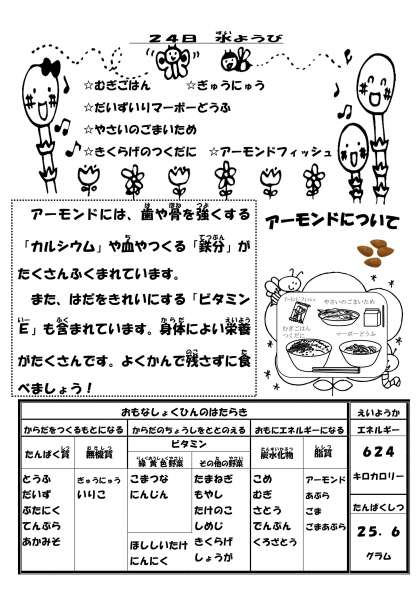 24日 水ようび
☆むぎごはん ☆ぎゅうにゅう
☆だいずいりマーボーどうふ
☆やさいのごまいため
☆きくらげのつくだに ☆アーモンドフィッシュ
アーモンドには、歯や骨を強くする
「カルシウム」や血やつくる「鉄分」が
たくさんふくまれています。
また、はだをきれいにする「ビタミン
E」も含まれています。身体によい栄養
がたくさんです。よくかんで残さずに食
べましょう！
アーモンドについて
アーモンドフィッシュ
やさいのごまいため
むぎごはん
つくだに
マーボーどうふ
おもなしょくひんのはたらき
えいようか
からだをつくるもとになる
からだのちょうしをととのえる
おもにエネルギーになる
エネルギー
たんぱく質
無機質
ビタミン
緑黄色野菜
その他の野菜
炭水化物
脂質
624
キロカロリー
とうふ
だいず
ぶたにく
てんぷら
あかみそ
ぎゅうにゅう
いりこ
こまつな
にんじん
ほししいたけ
にんにく
たまねぎ
もやし
たけのこ
しめじ
きくらげ
しょうが
こめ
むぎ
さとう
でんぷん
くろざとう
アーモンド
あぶら
ごま
ごまあぶら
たんぱくしつ
25.6
グラム